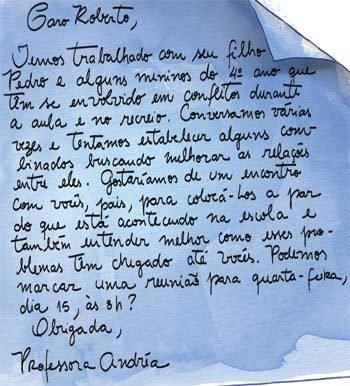 Caro Roberto,
Temos trabalhado com seu filho
Pedro e alguns meninos do 4º ano que
têm se envolvido em conflitos durante
a aula e no recreio. Conversamos várias
vezes e tentamos estabelecer alguns com-
binados buscando melhorar as relações
entre eles. Gostaríamos de um encontro
com vocês, pais, para colocá-los a par
do que está acontecendo na escola e
também entender melhor como esses pro-
blemas têm chegado até vocês. Podemos
marcar uma reunião para quarta-feira,
dia 15, às 8h?
Obrigada,
Professora Andréa